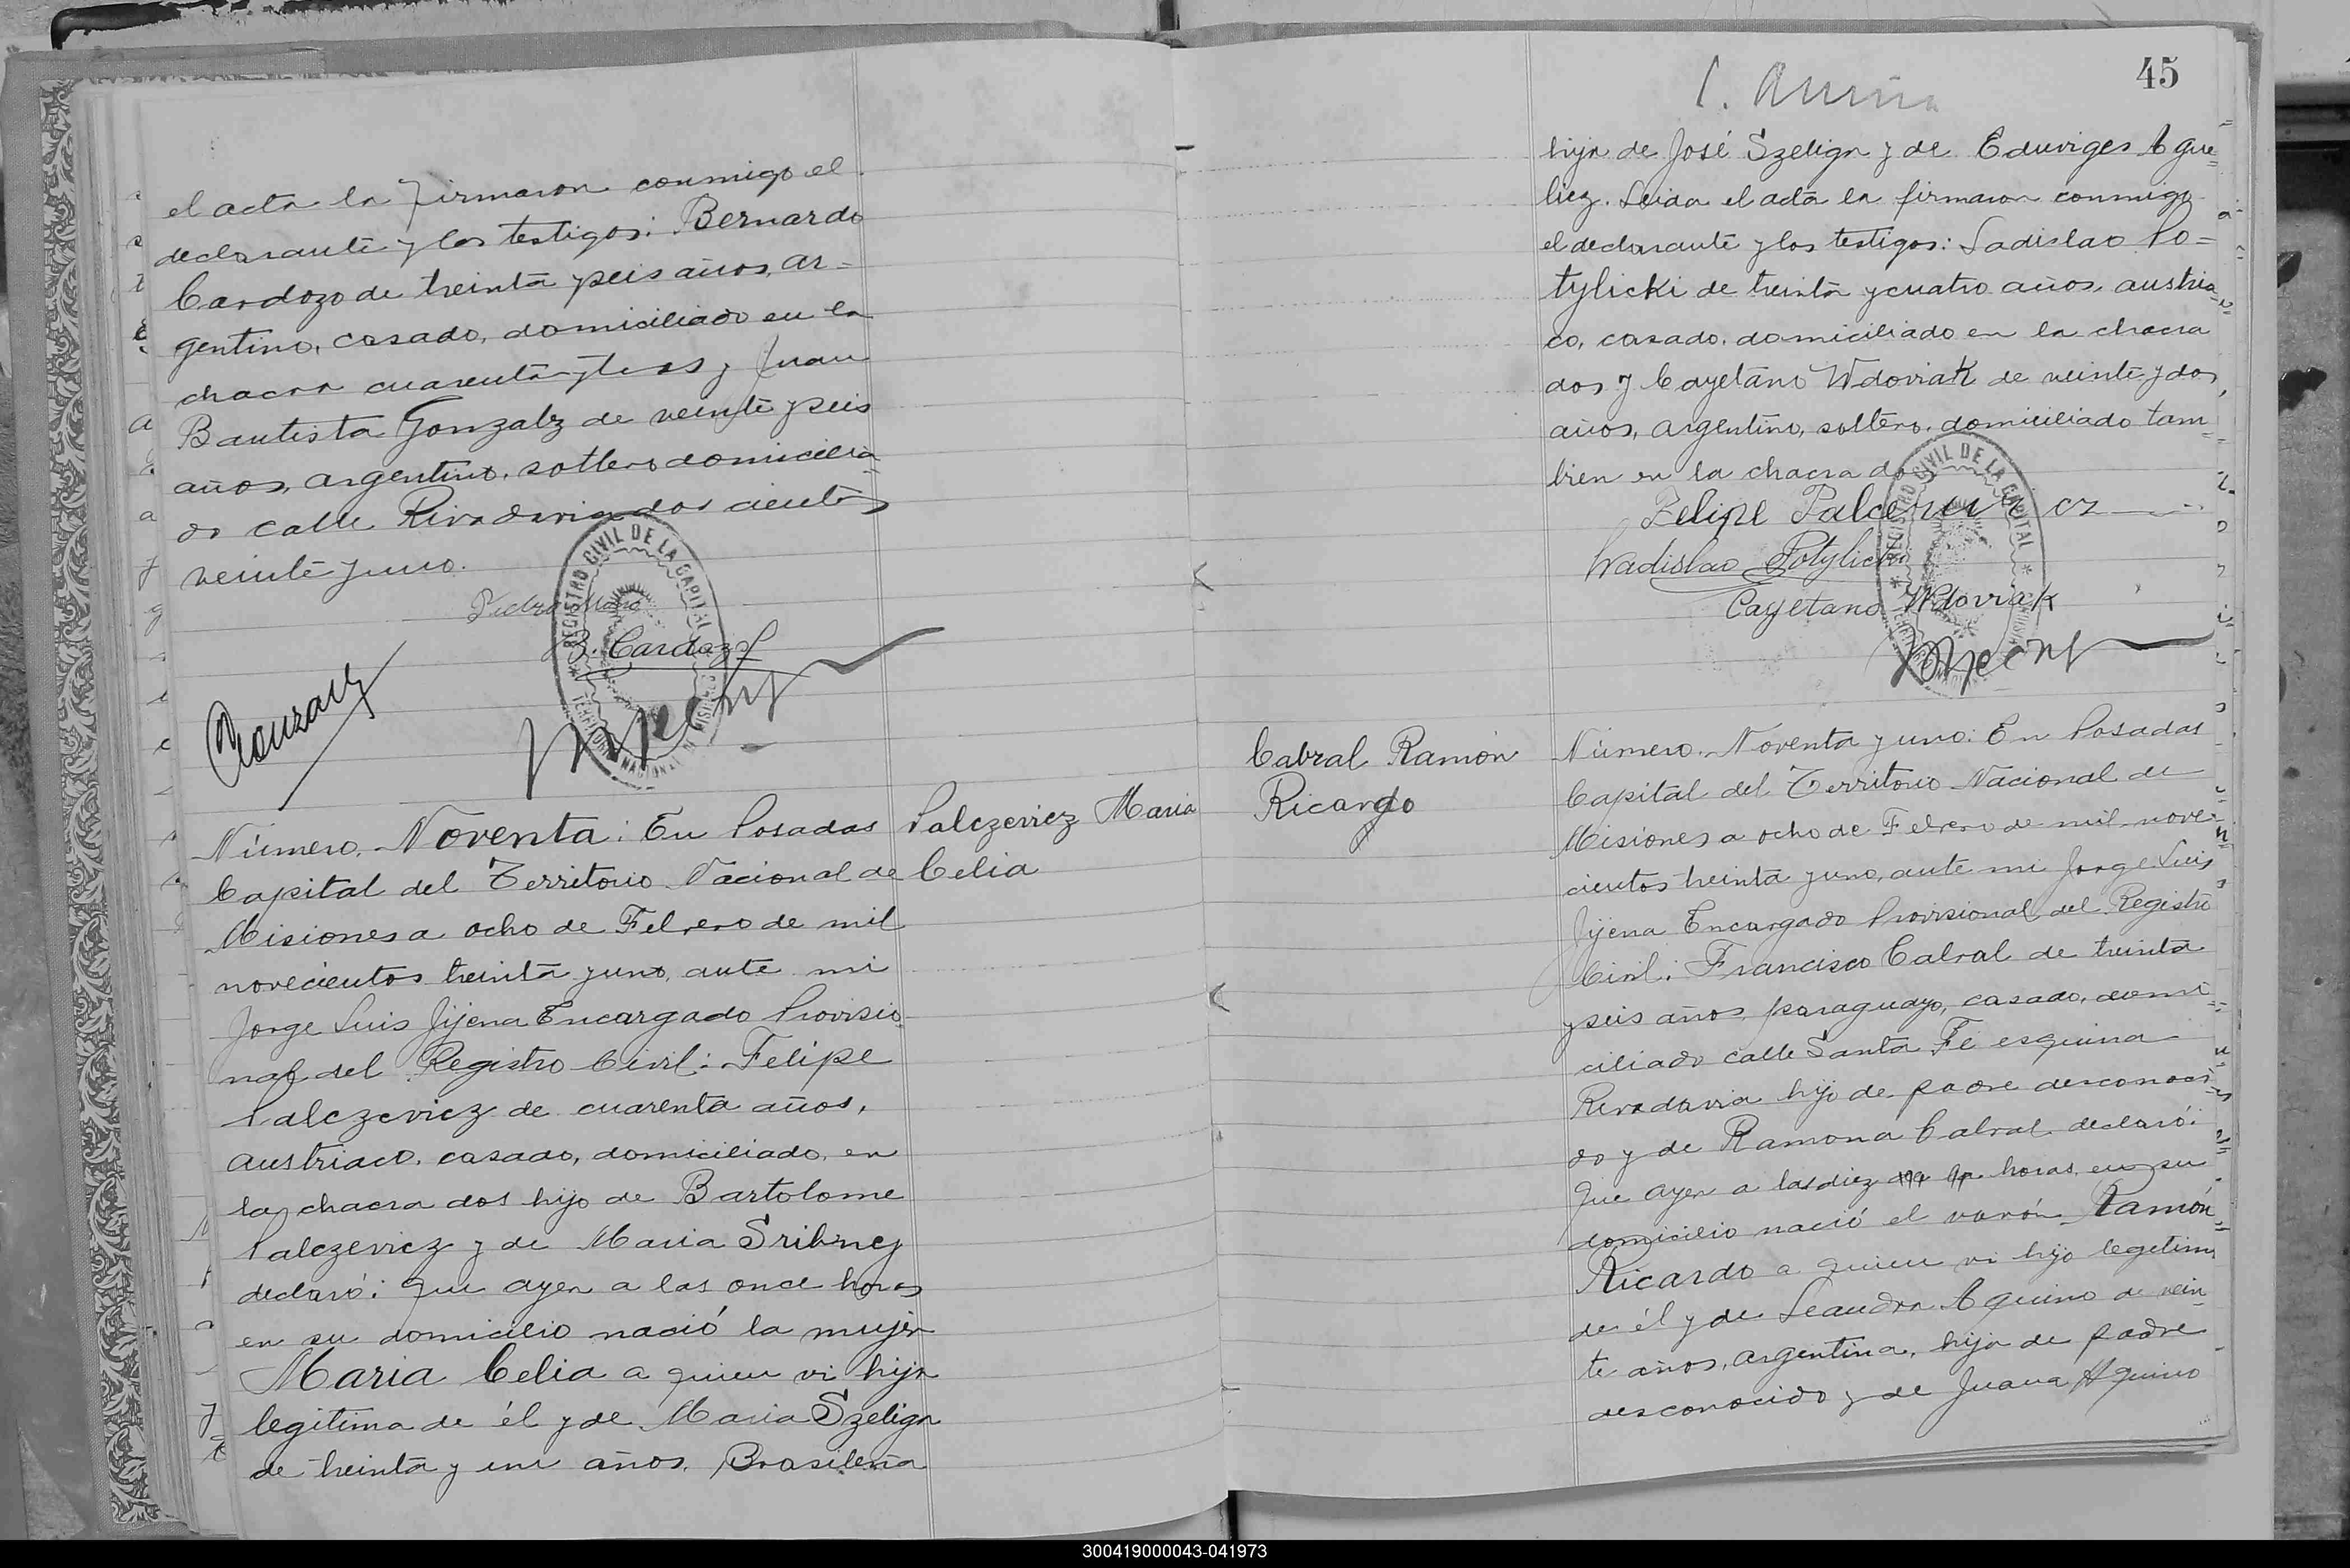 el acta la firmaron conmigo el
declarante y los testigos: Bernardo
Cardozo de treinta y seis años, ar=
gentino, casado, domiciliado en la
chacra cuarenta y tres y Juan
Bautista Gonzalez de veinte y seis
años, argentino, soltero domicilia=
do calle Rivadavia dos cientos
veinte y uno.
REGISTRO CIVIL DE LA CAPITAL
TERRITORIO NACIONAL DE MISIONES
Pedro
B. Cardozo
Gonzalez
Palczeviez Maria
Celia
Número. Noventa: En Posadas
Capital del Territorio Nacional de
Misiones a ocho de Febrero de mil
novecientos treinta y uno, ante mi
Jorge Luis Jijena Encargado Provisio-
nal del Registro Civil: Felipe
Palczeviez de cuarenta años,
austriaco, casado, domiciliado, en
la chacra dos hijo de Bartolome
Palczeviez y de Maria Sribney
declaró: que ayer a las once horas
en su domicilio nació la mujer
Maria Celia a quien vi hija
legitima de él y de Maria Szeliga
de treinta y un años, Brasileña
45
hija de José Szeliga y de Eduviges Ague=
liez. Leida el acta la firmaron conmigo
el declarante y los testigos: Ladislao Po=
tylicki de treinta y cuatro años, austria=
co, casado, domiciliado en la chacra
dos y Cayetano Wdoviak de veinte y dos
años, argentino, soltero, domiciliado tam=
bien en la chacra dos
REGISTRO CIVIL DE LA CAPITAL
Felipe Palczewicz
Wadislao Potylicki
Cayetano Wdoviak
Cabral Ramón
Ricardo
Número. Noventa y uno: En Posadas
Capital del Territorio Nacional de
Misiones a ocho de Febrero de mil nove-
cientos treinta y uno, ante mi Jorge Luis
Jijena Encargado Provisional del Registro
Civil: Francisco Cabral de treinta
y seis años, paraguayo, casado, domi=
ciliado calle Santa Fé esquina
Rivadavia hijo de padre desconoci=
do y de Ramona Cabral declaró:
que ayer a las diez horas, en su
domicilio nació el varón Ramón
Ricardo a quien vi hijo legitimo
de él y de Leandra Aquino de vein-
te años, argentina, hija de padre
desconocido y de Juana Aquino
300419000043-041973